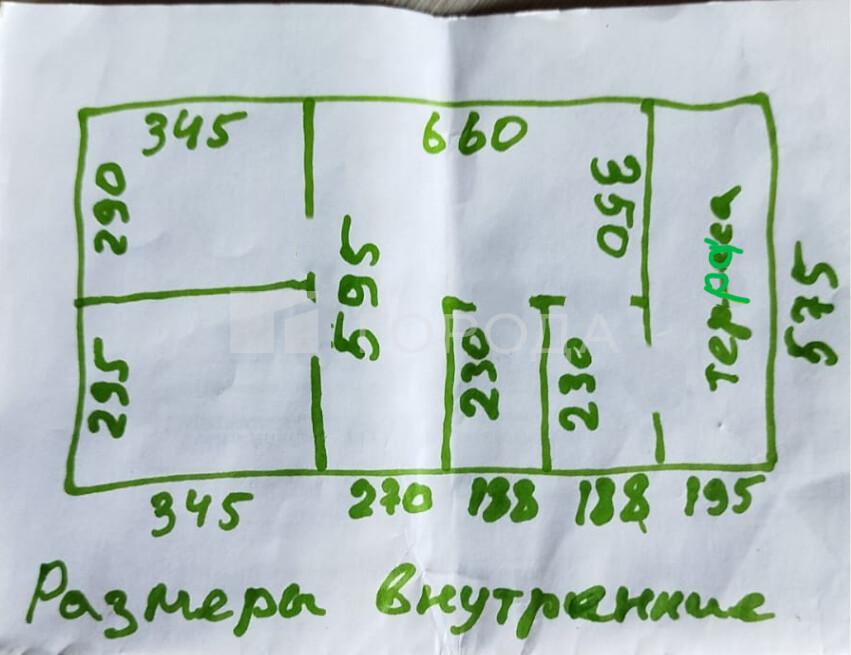 345
660
290
350
595
терраса
575
ГОРОДА
295
230
230
345
270
188
188
195
Размеры внутренние